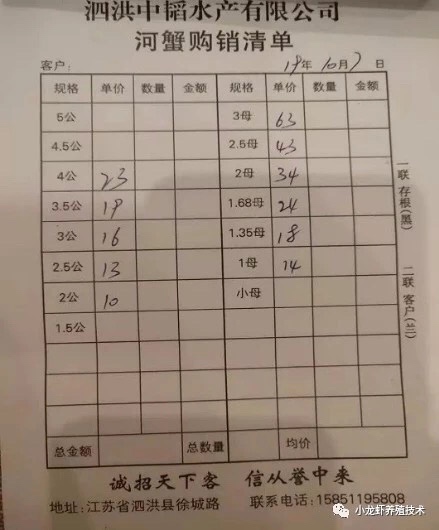 泗洪中韬水产有限公司
河蟹购销清单
客户： 19年 10月 7日
规格 单价 数量 金额 规格 单价 数量 金额
5公 3母 63
4.5公 2.5母 43
4公 23 2母 34
3.5公 19 1.68母 24
3公 16 1.35母 18
2.5公 13 1母 14
2公 10 小母
1.5公
总金额 总数量 均价
一联存根(黑) 二联客户(兰)
诚招天下客 信从誉中来
地址:江苏省泗洪县徐城路 联系电话:15851195808
小龙虾养殖技术